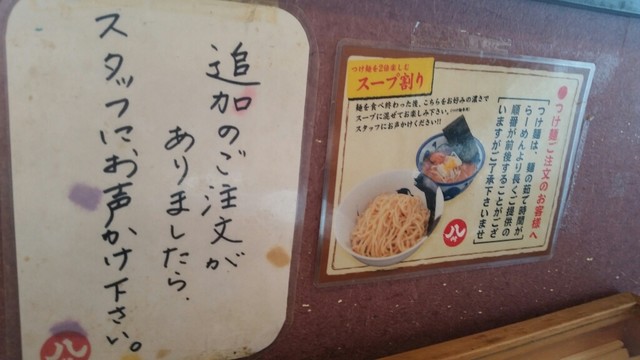 追加のご注文が
ありましたら、
スタッフに、お声かけ下さい。
八
つけ麺を2倍楽しむ
スープ割り
麺を食べ終わった後、こちらをお好みの濃さで
スープに混ぜてお楽しみ下さい。
スタッフにお声かけください!!
つけ麺ご注文のお客様へ
つけ麺は、麺の茹で時間が
らーめんより長くご提供の
順番が前後することがござ
いますがご了承下さいませ
八